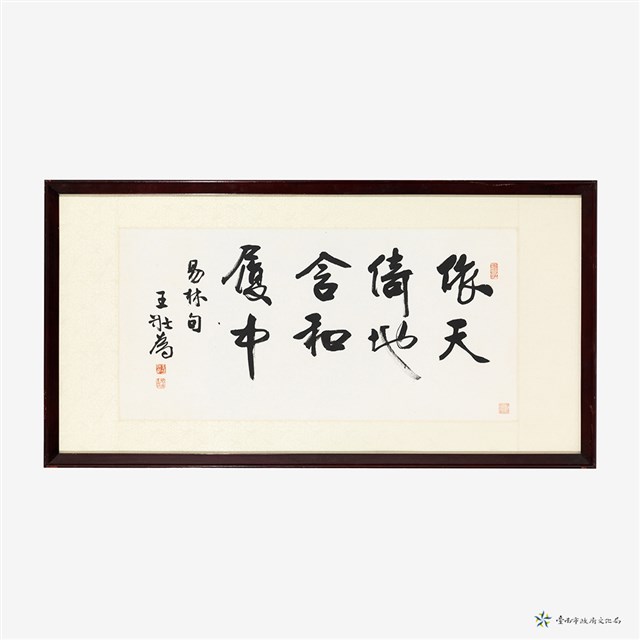 依天
倚地
含和
履中
易林句
王壯為
臺南市政府文化局